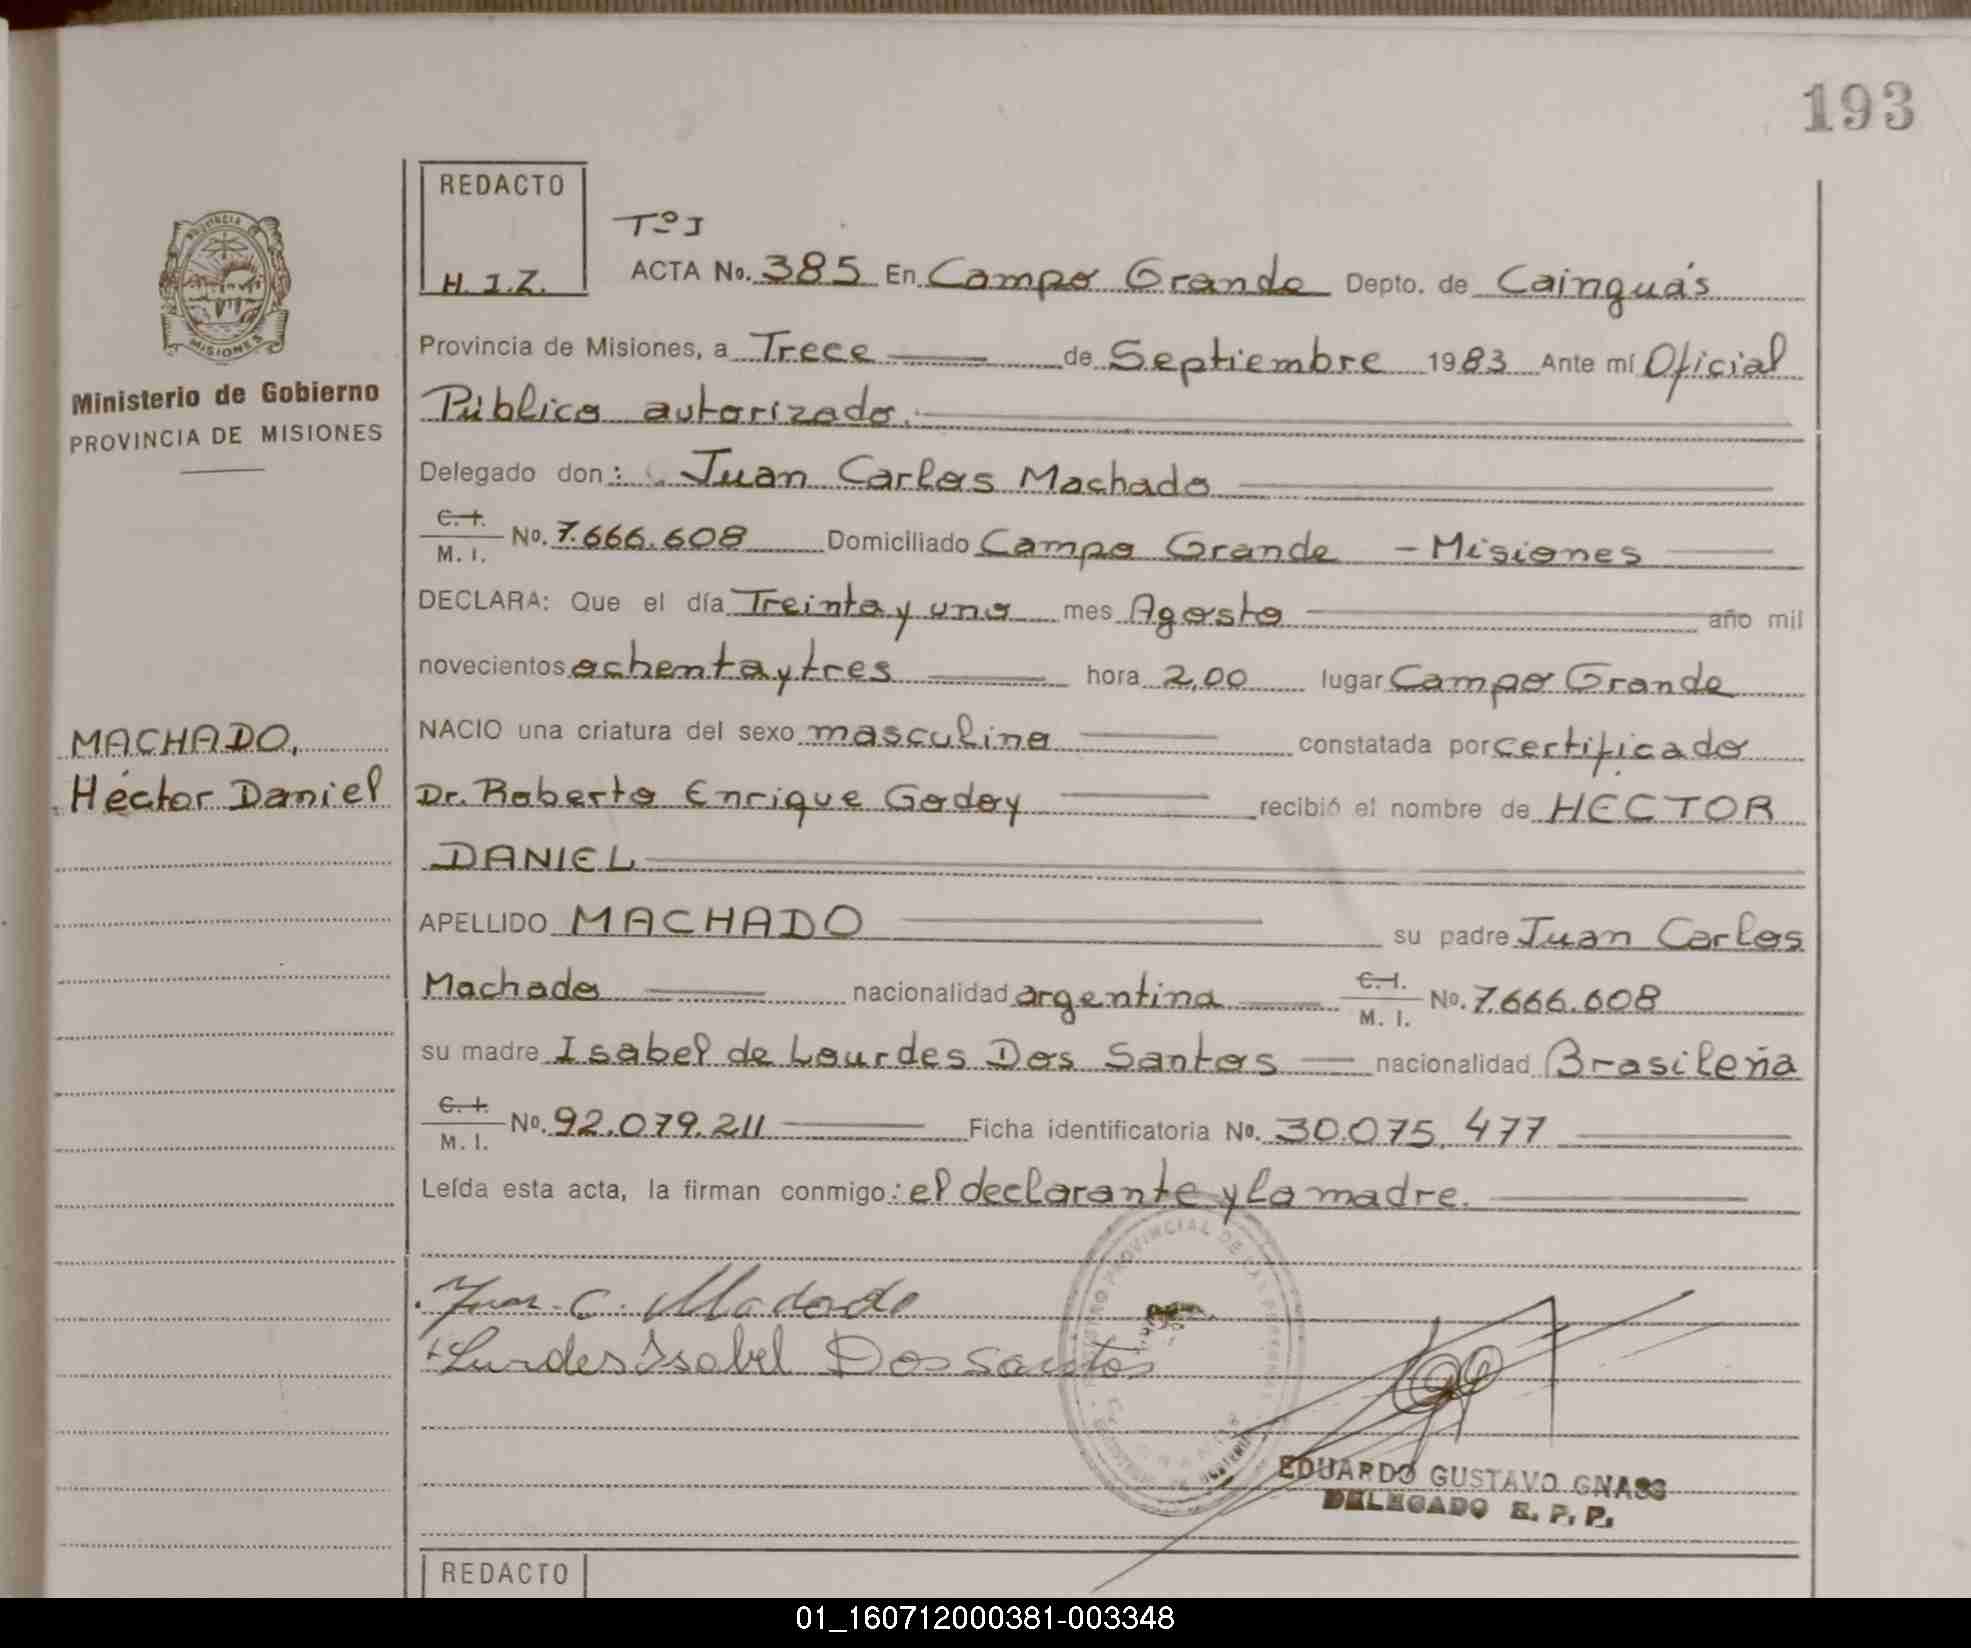 193
REDACTO
H.I.Z.
Tº I
ACTA No. 385 En Campo Grande Depto. de Cainguás
Provincia de Misiones, a Trece de Septiembre 1983 Ante mí Oficial
Público autorizado.
Delegado don: Juan Carlos Machado
C. I.
M. I. No. 7.666.608 Domiciliado Campo Grande - Misiones
DECLARA: Que el día Treinta y uno mes Agosto año mil
novecientos ochenta y tres hora 2,00 lugar Campo Grande
NACIO una criatura del sexo masculino constatada por certificado
Dr. Roberto Enrique Godoy recibió el nombre de HECTOR
DANIEL
APELLIDO MACHADO su padre Juan Carlos
Machado nacionalidad argentina C. I.
M. I. No. 7.666.608
su madre Isabel de Lourdes Dos Santos nacionalidad Brasileña
C. I.
M. I. No. 92.079.211 Ficha identificatoria No. 30.075.477
Leída esta acta, la firman conmigo: el declarante y la madre.
Juan C. Machado
Lurdes Isabel Dos Santos
REGISTRO PROVINCIAL DE LAS PERSONAS
EDUARDO GUSTAVO GNASS
DELEGADO R. P. P.
REDACTO
PROVINCIA DE
MISIONES
Ministerio de Gobierno
PROVINCIA DE MISIONES
MACHADO,
Héctor Daniel
01_160712000381-003348